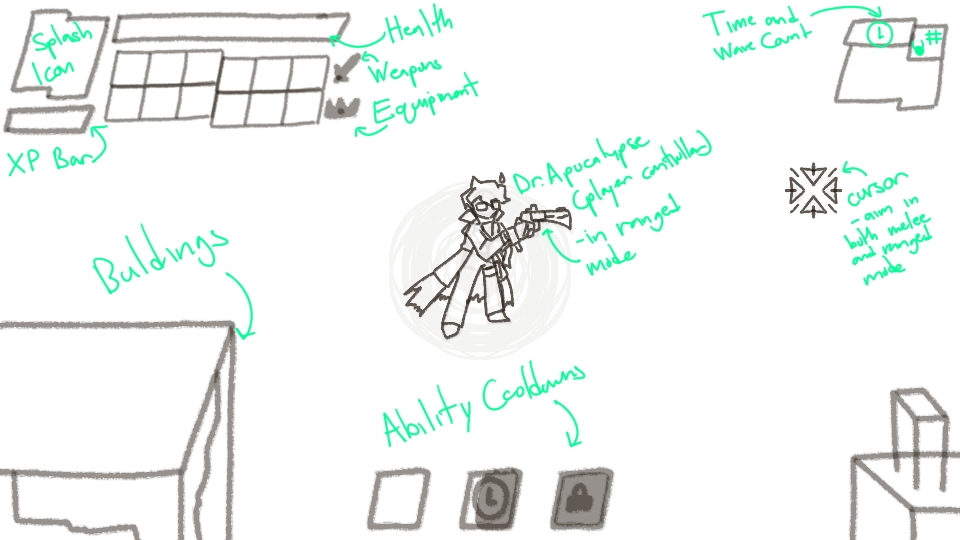 Splash
Icon
Health
Weapons
Equipment
XP Bar
Time and
Wave Count
#
Dr. Apocalypse
(player controlled)
-in ranged
mode
cursor
-aim in
both melee
and ranged
mode
Buildings
Ability Cooldowns